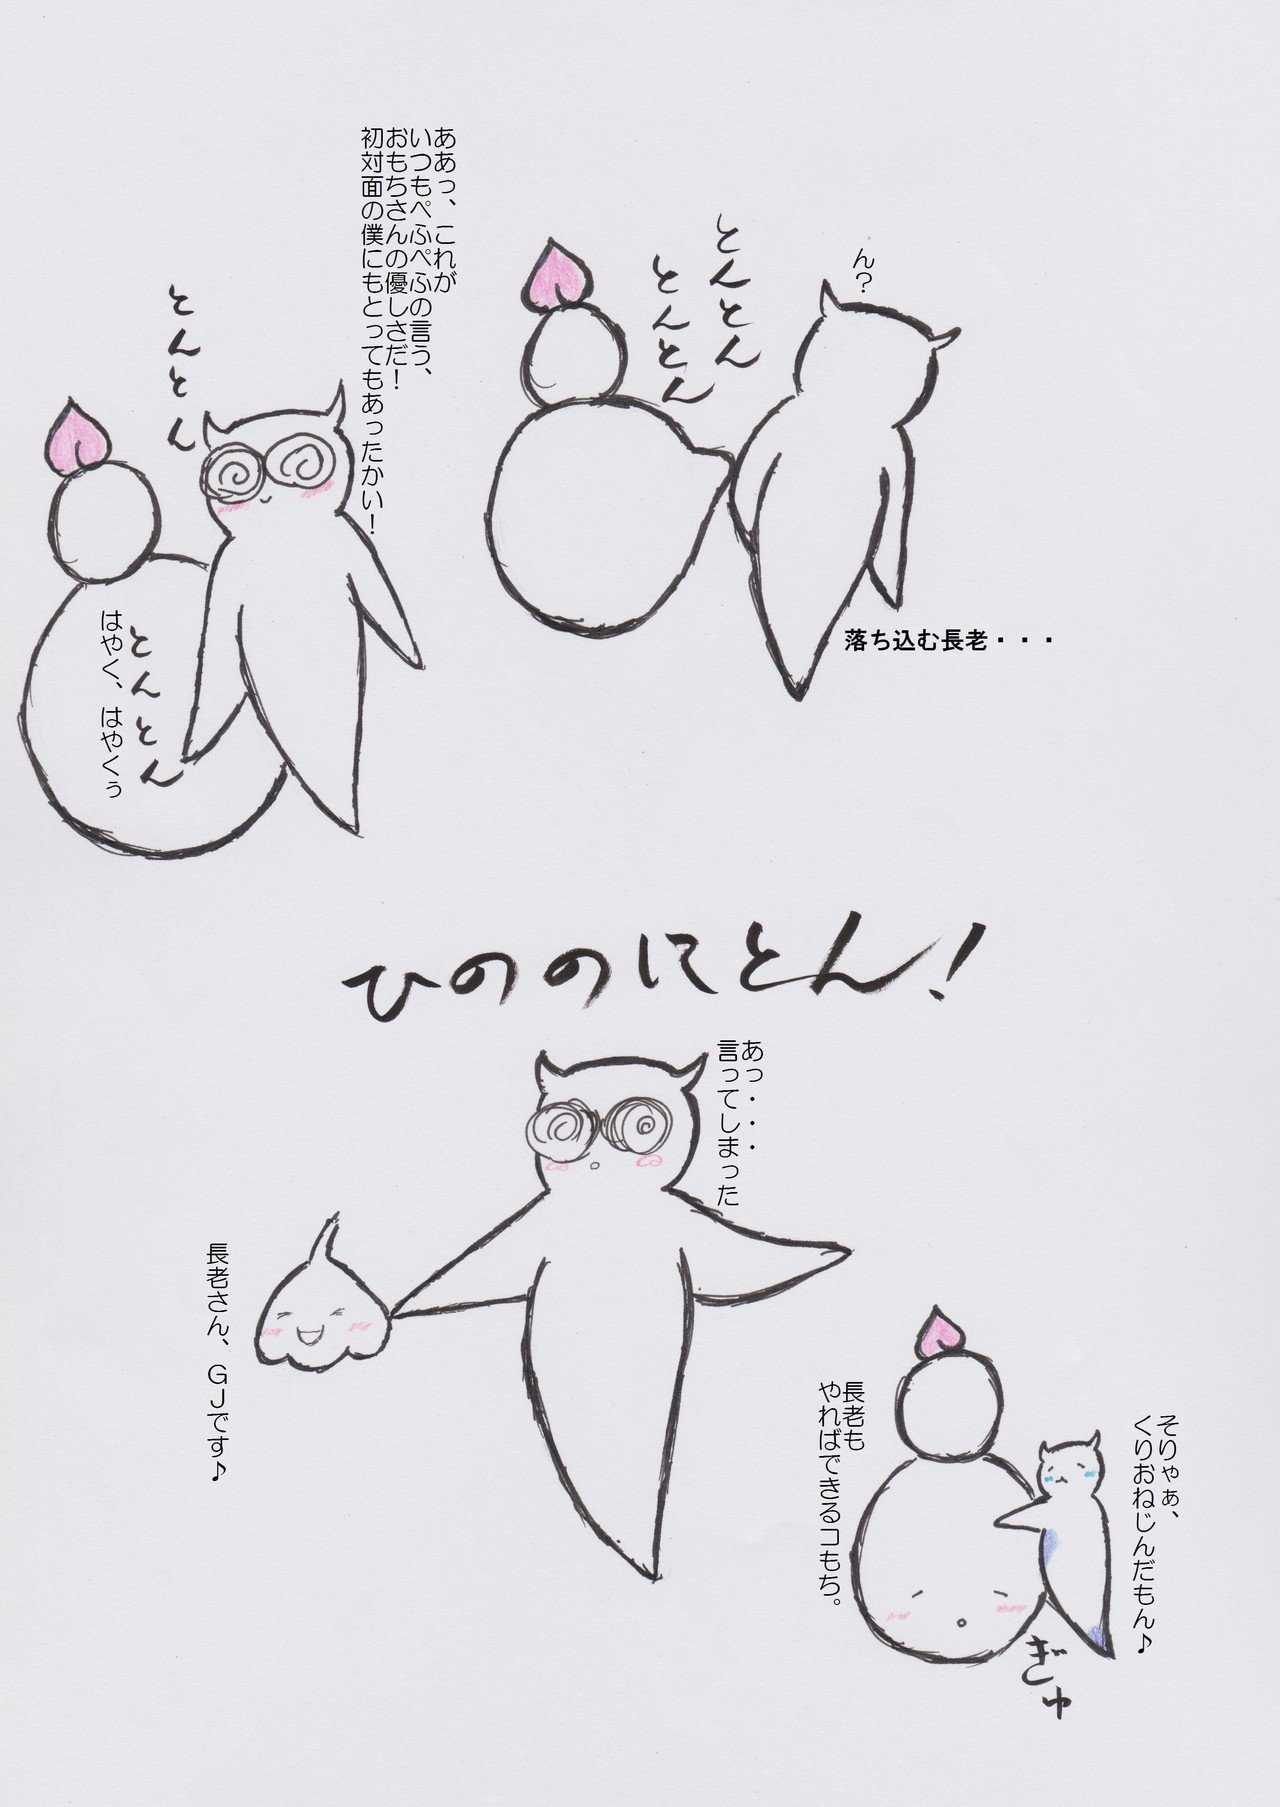 ん？
とんとん
とんとん
落ち込む長老・・・
ああっ、これが
いつもぺふぺふの言う、
おもちさんの優しさだ！
初対面の僕にもとってもあったかい！
とんとん
とんとん
はやく、はやくぅ
ひののにとん！
あっ・・・
言ってしまった
長老さん、ＧＪです♪
そりゃぁ、
くりおねじんだもん♪
長老も
やればできるコもち。
ぎゅ